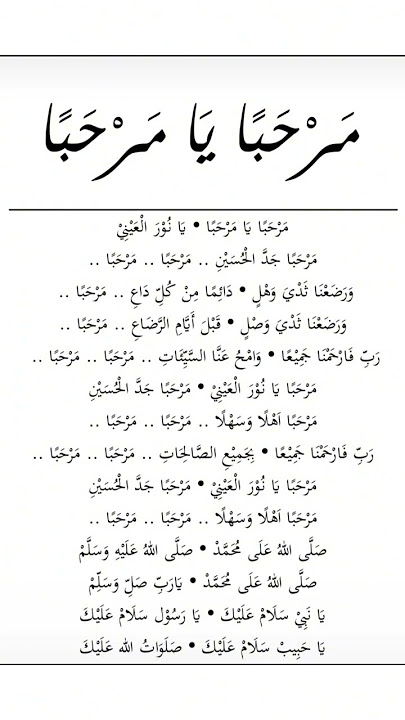 مَرْحَبًا يَا مَرْحَبًا
مَرْحَبًا يَا مَرْحَبًا • يَا نُوْرَ الْعَيْنِيْ
مَرْحَبًا جَدَّ الْحُسَيْنِ .. مَرْحَبًا .. مَرْحَبًا ..
وَرَضَعْنَا ثَدْيَ وَهْلٍ • دَائِمًا مِنْ كُلِّ دَاعِ .. مَرْحَبًا ..
وَرَضَعْنَا ثَدْيَ وَصْلٍ • قَبْلَ أَيَّامِ الرَّضَاعِ .. مَرْحَبًا ..
رَبِّ فَارْحَمْنَا جَمِيْعًا • وَامْحُ عَنَّا السَّيِّئَاتِ .. مَرْحَبًا .. مَرْحَبًا ..
مَرْحَبًا يَا نُوْرَ الْعَيْنِيْ • مَرْحَبًا جَدَّ الْحُسَيْنِ
مَرْحَبًا اَهْلًا وَسَهْلًا .. مَرْحَبًا .. مَرْحَبًا ..
رَبِّ فَارْحَمْنَا جَمِيْعًا • بِجَمِيْعِ الصَّالِحَاتِ .. مَرْحَبًا .. مَرْحَبًا ..
مَرْحَبًا يَا نُوْرَ الْعَيْنِيْ • مَرْحَبًا جَدَّ الْحُسَيْنِ
مَرْحَبًا اَهْلًا وَسَهْلًا .. مَرْحَبًا .. مَرْحَبًا ..
صَلَّى اللهُ عَلَى مُحَمَّدْ • صَلَّى اللهُ عَلَيْهِ وَسَلَّمْ
صَلَّى اللهُ عَلَى مُحَمَّدْ • يَارَبِّ صَلِّ وَسَلِّمْ
يَا نَبِيْ سَلَامْ عَلَيْكَ • يَا رَسُوْل سَلَامْ عَلَيْكَ
يَا حَبِيبْ سَلَامْ عَلَيْكَ • صَلَوَاتُ الله عَلَيْكَ